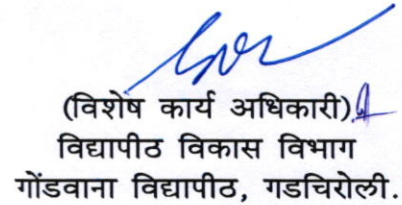 (विशेष कार्य अधिकारी)
विद्यापीठ विकास विभाग
गोंडवाना विद्यापीठ, गडचिरोली.